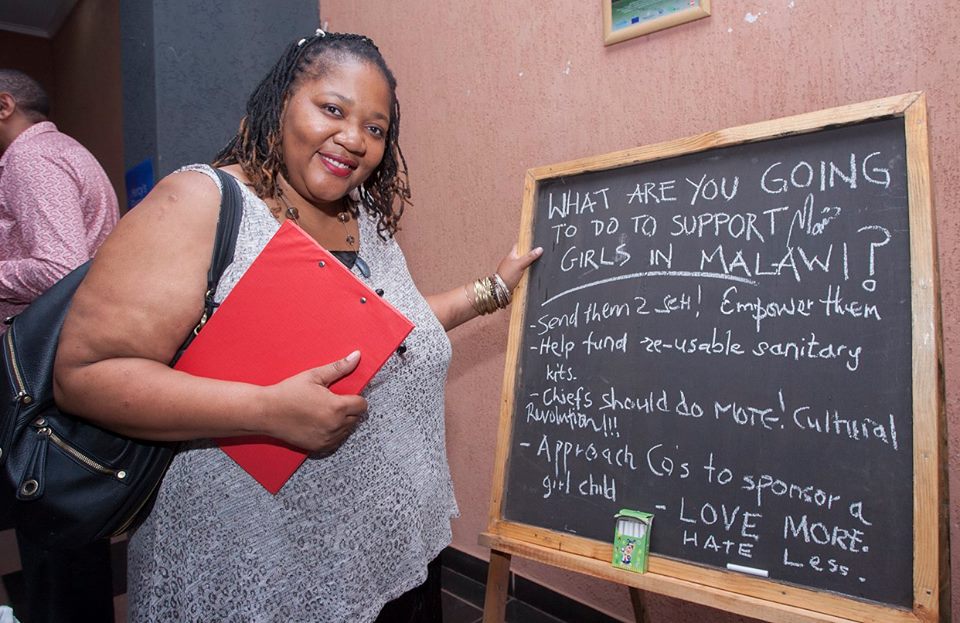 WHAT ARE YOU GOING
TO DO TO SUPPORT
GIRLS IN MALAWI?
- Send them 2 scH! Empower them
- Help fund re-usable sanitary
kits.
- Chiefs should do MORE! Cultural
Revolution!!!
- Approach Co's to sponsor a
girl child
- LOVE MORE.
HATE Less.